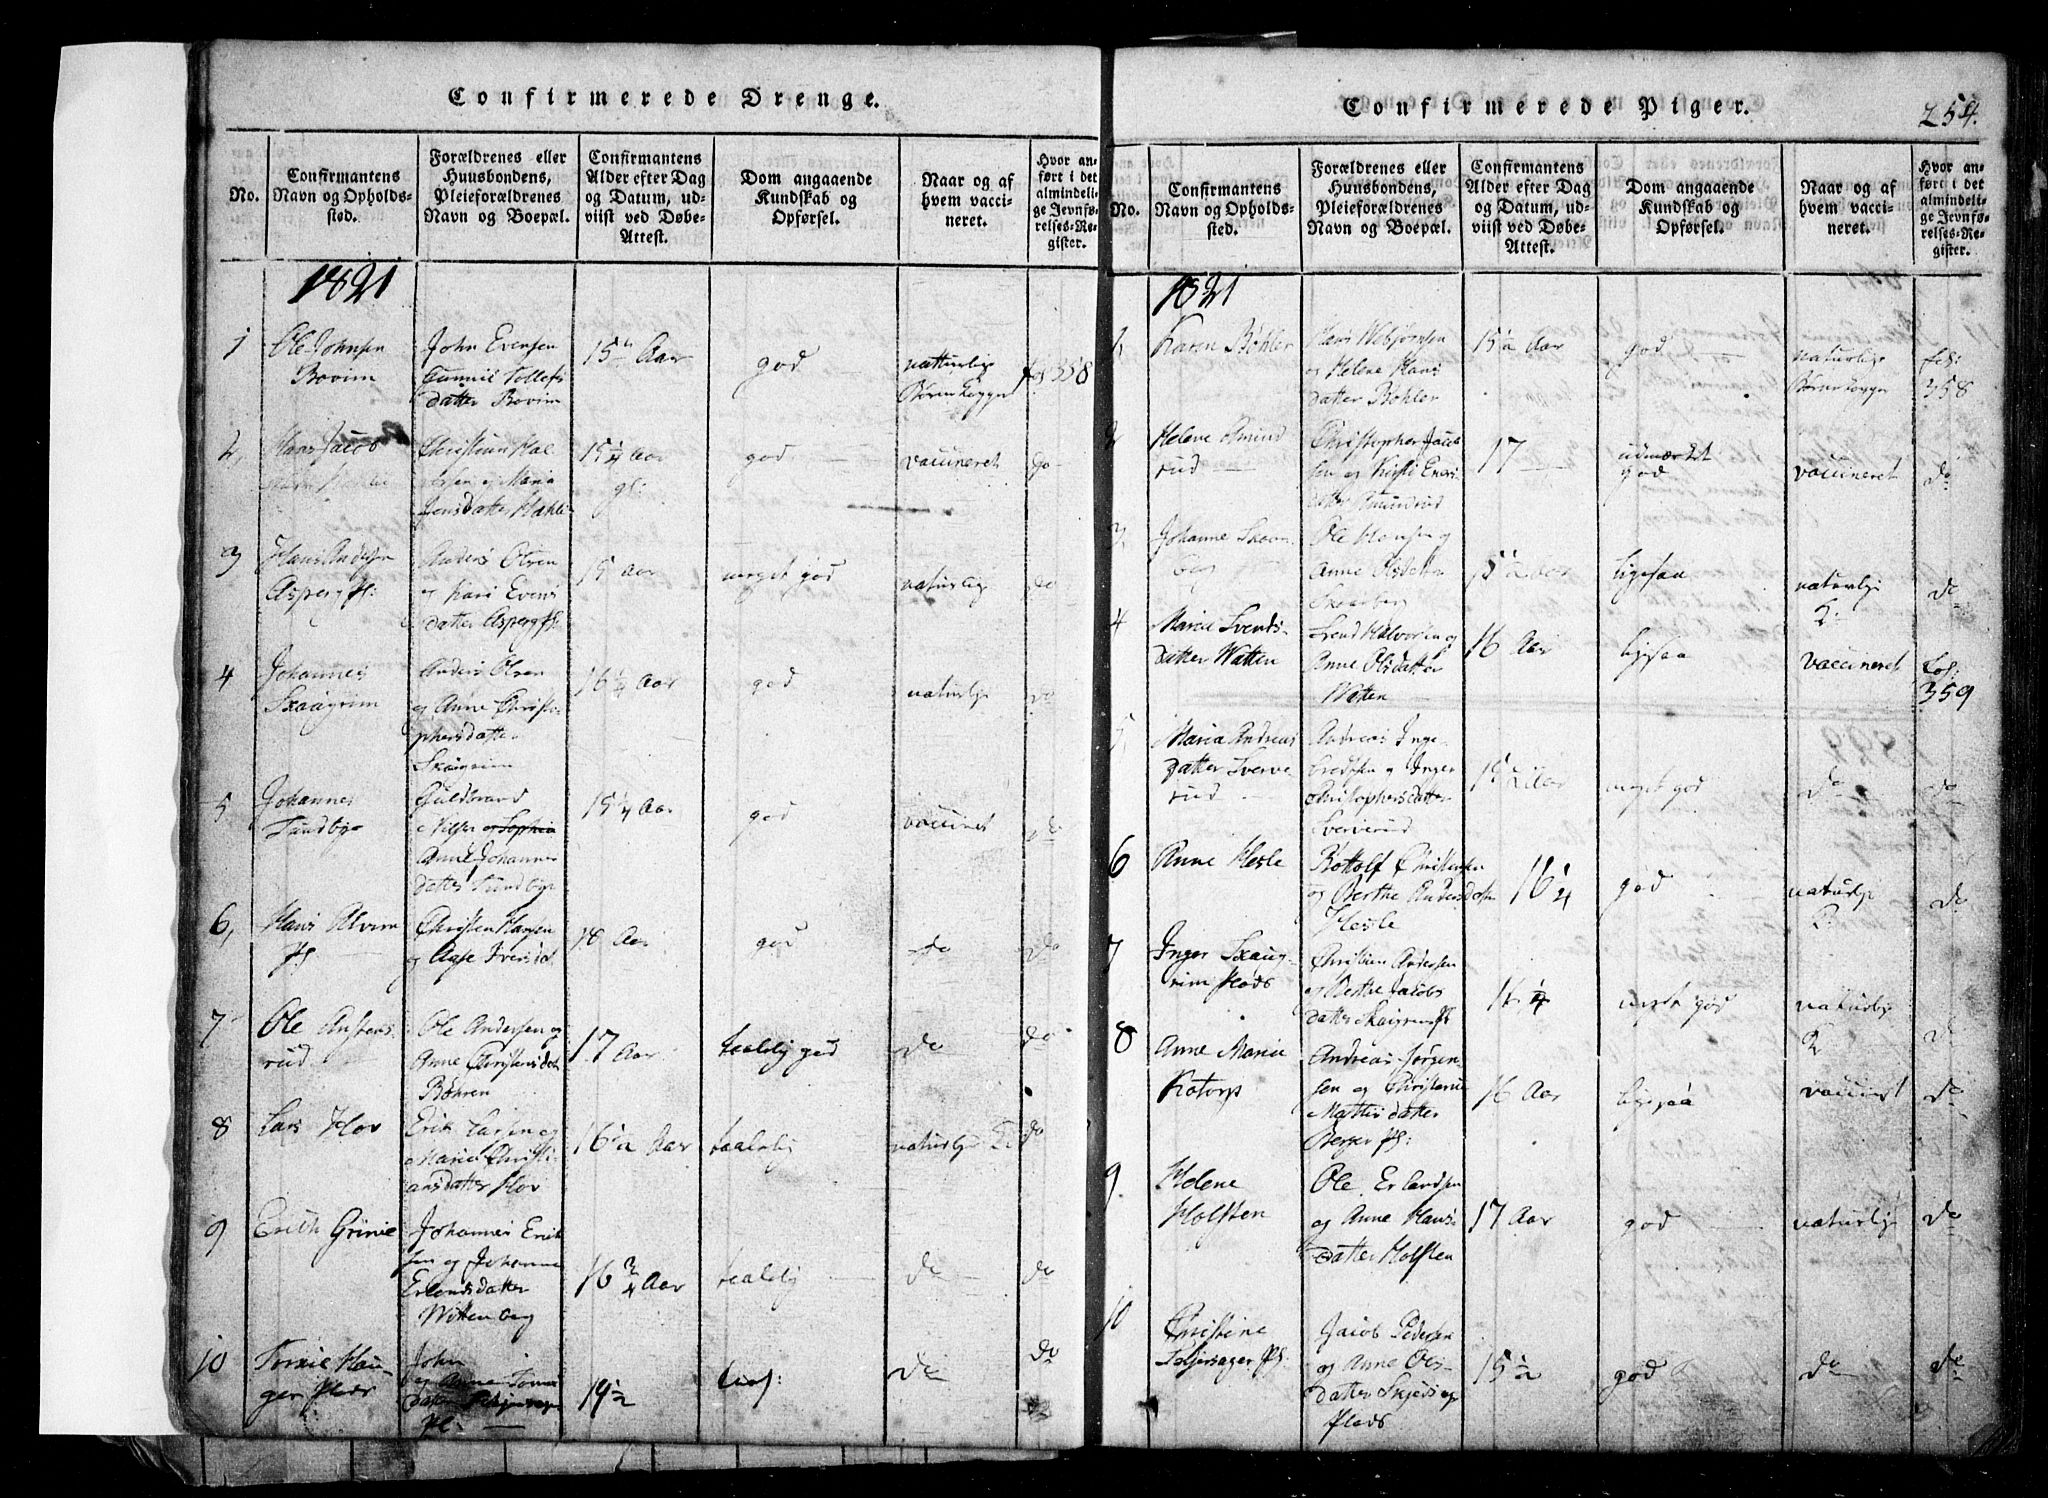 Confirmerede Drenge.
No.
Confirmantens
Navn og Opholds-
sted.
Forældrenes eller
Huusbondens,
Pleieforældrenes
Navn og Boepæl.
Confirmantens
Alder efter Dag
og Datum, ud-
viist ved Døbe-
Attest.
Dom angaaende
Kundskab og
Opførsel.
Naar og af
hvem vacci-
neret.
Hvor an-
ført i det
almindeli-
ge Jevnfø-
relses-Re-
gister.
1821
1
Ole Johnsen
Bovim
John Evensen
Gunnil Tollefs
datter Bovim
15 Aar
god
natturlige
fol 358
2,
Hans Jacob
Christian
og Maria
Jensdatter
15 1/4 Aar
god
vaccineret
do
3
Hans Andersen
Asperg Pl:
Anders Olsen
og Kari Evens
datter Asperg Pl:
15 Aar
meget god
naturlig
do
4
Johannes
Skaugrim
Anders Olsen
og Anne Christo-
phersdatter
Skaugrim
16 1/4 Aar
god
naturlig
do
5
Johannes
Sundbye
Guldbrand
Nilsen og Sophia
Anne Johannes
datter Sundbye
15 1/4 Aar
god
vaccinet
do
6,
Hans Alvim
Pl
Christen Hansen
og Aase Iversdat
18 Aar
god
do
do
7
Ole
rud
Ole Andersen og
Anne Christensdat
Bøhren
17 Aar
taalelig god
do
do
8
Lars Hov
Erik Larsen og
Marie Christi-
ansdatter Hov
16 1/2 Aar
taalelig
naturlig
do
9
Erich Grinie
Johannes Erik
sen og Johanne
Erlandsdatter
Wittenberg
16 3/4 Aar
taalelig
do
do
10
Hau-
ger Plads
John
og Anne
datter
Pl.
19 1/2
do
do
Confirmerede Piger.
254.
No.
Confirmantens
Navn og Opholds-
sted.
Forældrenes eller
Huusbondens,
Pleieforældrenes
Navn og Boepæl.
Confirmantens
Alder efter Dag
og Datum, ud-
viist ved Døbe-
Attest.
Dom angaaende
Kundskab og
Opførsel.
Naar og af
hvem vacci-
neret.
Hvor an-
ført i det
almindeli-
ge Jevnfø-
relses-Re-
gister.
1821
1
Karen Bøhler
Hans Webjørnsen
og Helene Hans
datter Bøhler
15 1/2 Aar
god
naturlige
fol:
358
2
Helene Amund
rud
Christopher Jacob
sen og Kirsti Eners
datter Amundrud
17
udmærket
god
vaccineret
do
3,
Johanne Skaar-
berg
Ole Hansen og
Anne Olsdatter
Skaarberg
15 1/2 Aar
ligesaa
naturlig
do
4
Maria Svends-
datter Watten
Svend Halvorsen og
Anne Olsdatter
Watten
16 Aar
ligesaa
vaccineret
fol:
359
5,
Maria Andreas
datter Sverve-
rud
Andreas Inge-
bredtsen og Inger
Christophersdatter
Sververud
15 1/2 Aar
meget god
do
do
6
Anne Hesle
Bottolf Christensen
og Berthe Andersdatter
Hesle
16 1/4
god
naturlig
do
7
Inger Skaug-
rim Plads
Christian Andersen
og Berthe Jacobs
datter Skaugrim Pl
16 1/4
meget god
naturlig
do
8
Anne Maria
Rotorp
Andreas Jørgen-
sen og Christine
Matthisdatter
Berger Pl:
16 Aar
ligesaa
vaccinet
do
9.
Helene
Holsten
Ole Erlandsen
og Anne Hans-
datter Holsten
17 Aar
god
naturlig
do
10
Christine
Pl.
Jacob Pedersen
og Anne Ols-
datter
Plads
15 1/2
god
do
do